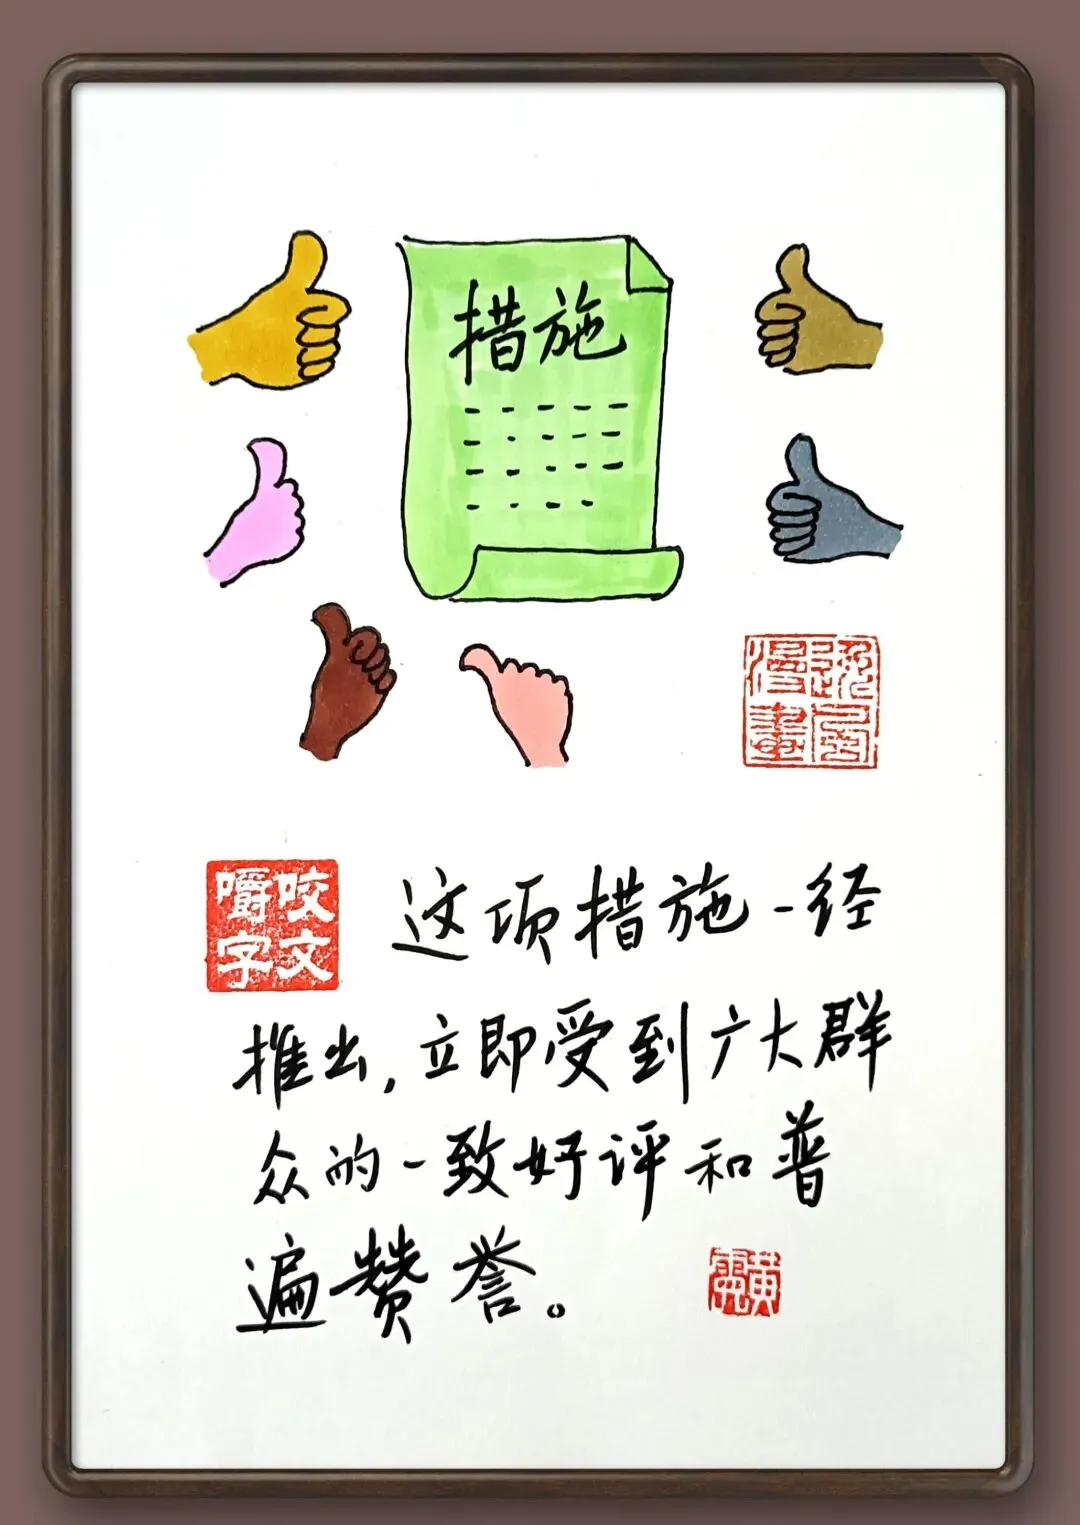 措施
漫畫
咬文
嚼字
这项措施一经
推出,立即受到广大群
众的一致好评和普
遍赞誉。
黄